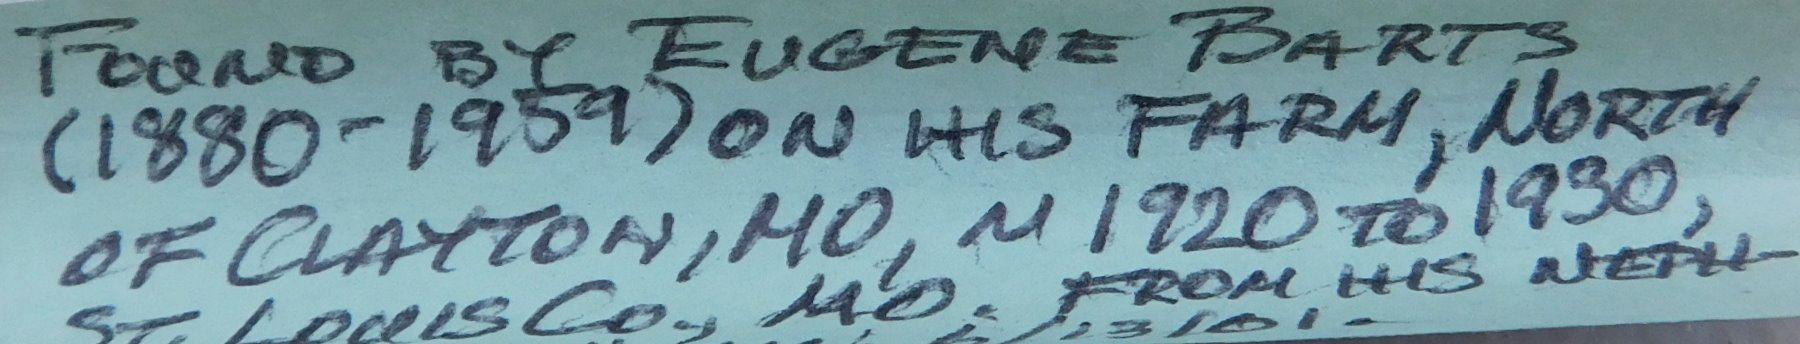 FOUND BY EUGENE BARTS
(1880-1959) ON HIS FARM, NORTH
OF CLAYTON, MO, N 1920 TO 1930,
ST. LOUIS CO., MO. FROM HIS NEPH-
6/13/01-